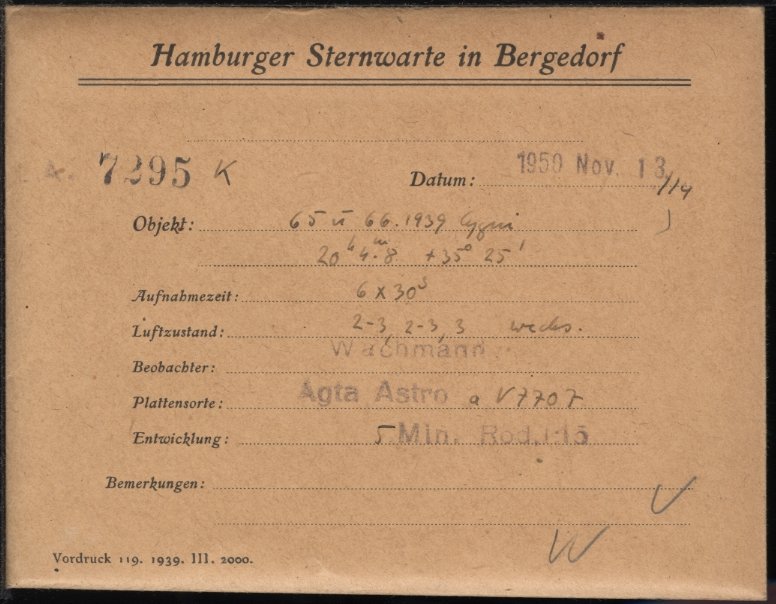 Hamburger Sternwarte in Bergedorf
7295 K
Datum: 1950 Nov. 13/14
Objekt: 65 u 66.1939 Cygni
20h 4m.8 +35° 25'
Aufnahmezeit: 6 x 30s
Luftzustand: 2-3, 2-3, 3 wechs.
Wachmann
Beobachter:
Plattensorte: Agfa Astro a V7707
Entwicklung: 5 Min. Rod. 1:15
Bemerkungen:
V
W
Vordruck 119. 1939. III. 2000.